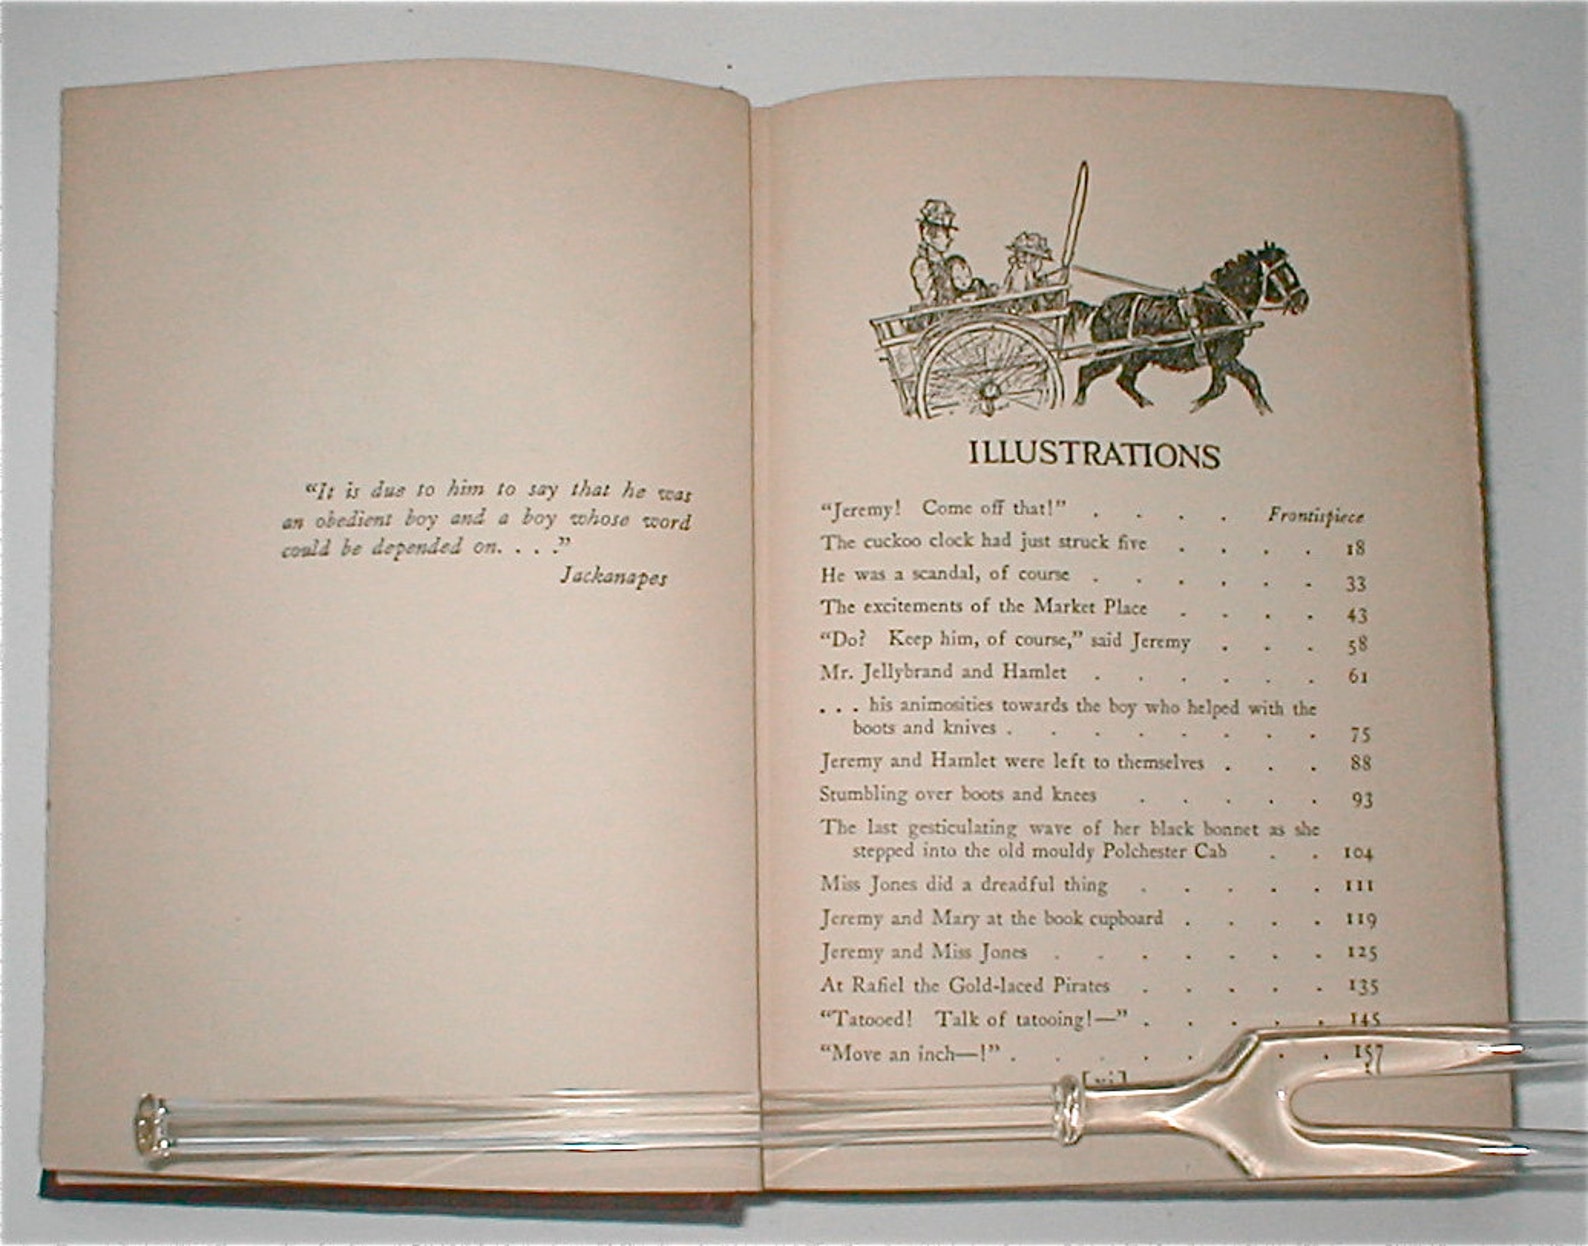 “It is due to him to say that he was
an obedient boy and a boy whose word
could be depended on. . . .”
Jackanapes
ILLUSTRATIONS
“Jeremy! Come off that!” . . . . Frontispiece
The cuckoo clock had just struck five . . . . 18
He was a scandal, of course . . . . . . 33
The excitements of the Market Place . . . . 43
“Do? Keep him, of course,” said Jeremy . . . 58
Mr. Jellybrand and Hamlet . . . . . . 61
. . . his animosities towards the boy who helped with the
boots and knives . . . . . . . . 75
Jeremy and Hamlet were left to themselves . . . 88
Stumbling over boots and knees . . . . . 93
The last gesticulating wave of her black bonnet as she
stepped into the old mouldy Polchester Cab . . 104
Miss Jones did a dreadful thing . . . . . 111
Jeremy and Mary at the book cupboard . . . . 119
Jeremy and Miss Jones . . . . . . . 125
At Rafiel the Gold-laced Pirates . . . . . 135
“Tatooed! Talk of tatooing!—” . . . . . 145
“Move an inch—!” . . . . . . . . 157
[vi]